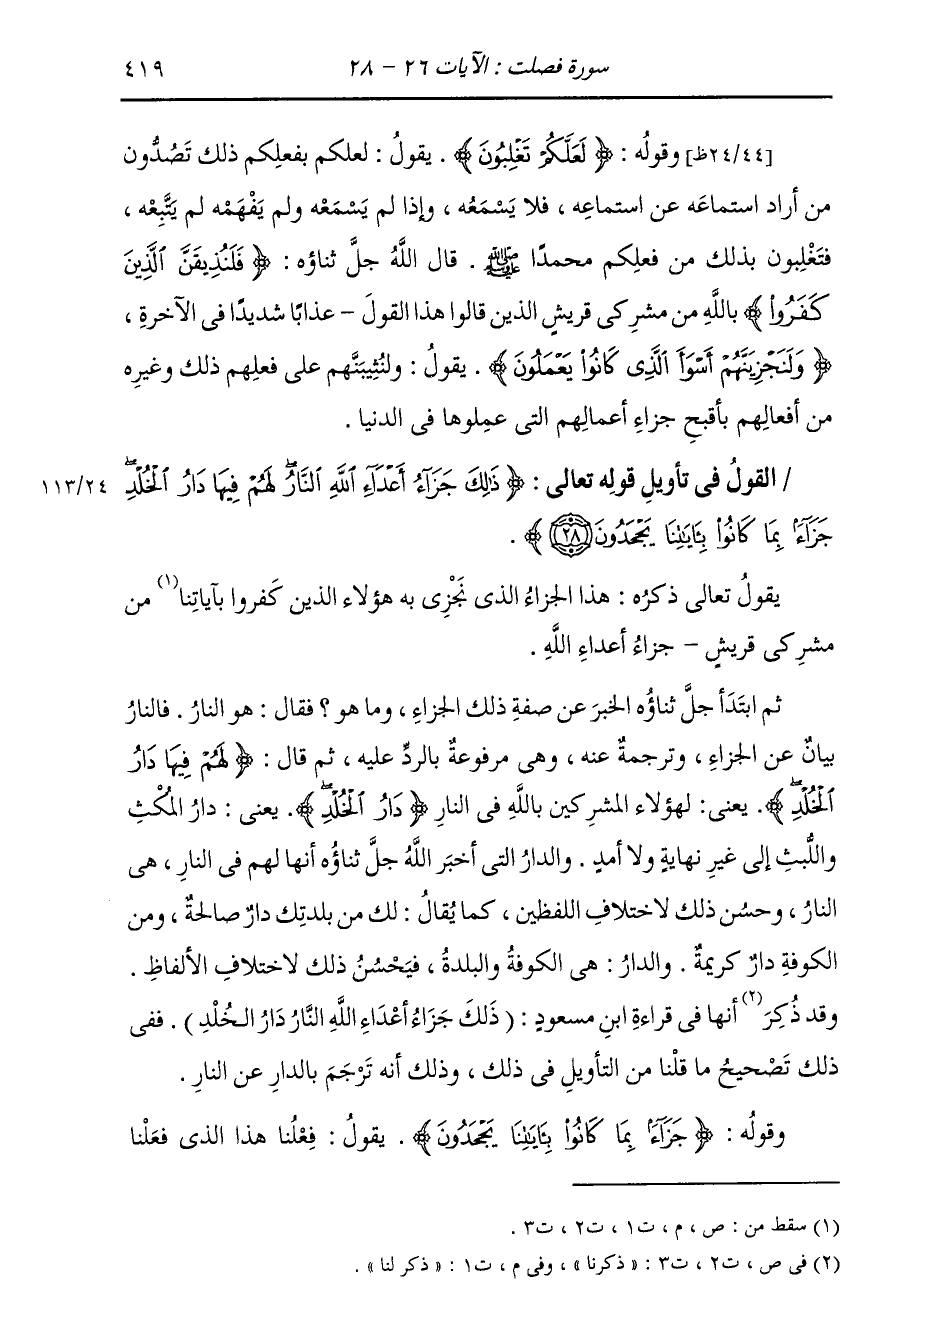 سورة فصلت : الآيات ٢٦ - ٢٨ ٤١٩
[٢٤/٤٤ظ] وقولُه : ﴿ لَعَلَّكُمْ تَغْلِبُونَ ﴾ . يقولُ : لعلكم بفعلِكم ذلك تَصُدُّون
من أراد استماعَه عن استماعِه ، فلا يَسْمَعُه ، وإذا لم يَسْمَعْه ولم يَفْهَمْه لم يَتَّبِعْه ،
فتَغْلِبون بذلك من فعلِكم محمدًا ﷺ . قال اللَّهُ جلَّ ثناؤه : ﴿ فَلَنُذِيقَنَّ ٱلَّذِينَ
كَفَرُواْ ﴾ باللَّهِ من مشركى قريشٍ الذين قالوا هذا القولَ - عذابًا شديدًا فى الآخرةِ ،
﴿ وَلَنَجْزِيَنَّهُمْ أَسْوَأَ ٱلَّذِى كَانُواْ يَعْمَلُونَ ﴾ . يقولُ : ولنُثِيبَنَّهم على فعلِهم ذلك وغيرِه
من أفعالِهم بأقبحِ جزاءِ أعمالِهم التى عمِلوها فى الدنيا .
/ القولُ فى تأويلِ قولِه تعالى : ﴿ ذَٰلِكَ جَزَآءُ أَعْدَآءِ ٱللَّهِ ٱلنَّارُۖ لَهُمْ فِيهَا دَارُ ٱلْخُلْدِۖ ١١٣/٢٤
جَزَآءًۢ بِمَا كَانُواْ بِـَٔايَٰتِنَا يَجْحَدُونَ ٢٨ ﴾ .
يقولُ تعالى ذكرُه : هذا الجزاءُ الذى نَجْزِى به هؤلاء الذين كَفروا بآياتِنا(١) من
مشركى قريشٍ - جزاءُ أعداءِ اللَّهِ .
ثم ابتَدَأ جلَّ ثناؤُه الخبرَ عن صفةِ ذلك الجزاءِ ، وما هو ؟ فقال : هو النارُ . فالنارُ
بيانٌ عن الجزاءِ ، وترجمةٌ عنه ، وهى مرفوعةٌ بالردِّ عليه ، ثم قال : ﴿ لَهُمْ فِيهَا دَارُ
ٱلْخُلْدِۖ ﴾. يعنى: لهؤلاء المشركين باللَّهِ فى النارِ ﴿ دَارُ ٱلْخُلْدِۖ ﴾. يعنى : دارُ المُكْثِ
واللُّبثِ إلى غيرِ نهايةٍ ولا أمدٍ . والدارُ التى أخبَر اللَّهُ جلَّ ثناؤُه أنها لهم فى النارِ ، هى
النارُ ، وحسُن ذلك لاختلافِ اللفظين ، كما يُقالُ : لك من بلدتِك دارٌ صالحةٌ ، ومن
الكوفةِ دارٌ كريمةٌ . والدارُ : هى الكوفةُ والبلدةُ ، فيَحْسُنُ ذلك لاختلافِ الألفاظِ .
وقد ذُكِرَ(٢) أنها فى قراءةِ ابنِ مسعودٍ : ( ذَلِكَ جَزَاءُ أَعْدَاءِ اللَّهِ النَّارُ دَارُ الخُلْدِ ) . ففى
ذلك تَصْحيحُ ما قلْنا من التأويلِ فى ذلك ، وذلك أنه تَرْجَمَ بالدارِ عن النارِ .
وقولُه : ﴿ جَزَآءًۢ بِمَا كَانُواْ بِـَٔايَٰتِنَا يَجْحَدُونَ ﴾ . يقولُ : فِعْلُنا هذا الذى فعَلْنا
(١) سقط من : ص ، م ، ت١ ، ت٢ ، ت٣ .
(٢) فى ص ، ت٢ ، ت٣ : « ذكرنا » ، وفى م ، ت١ : « ذكر لنا » .